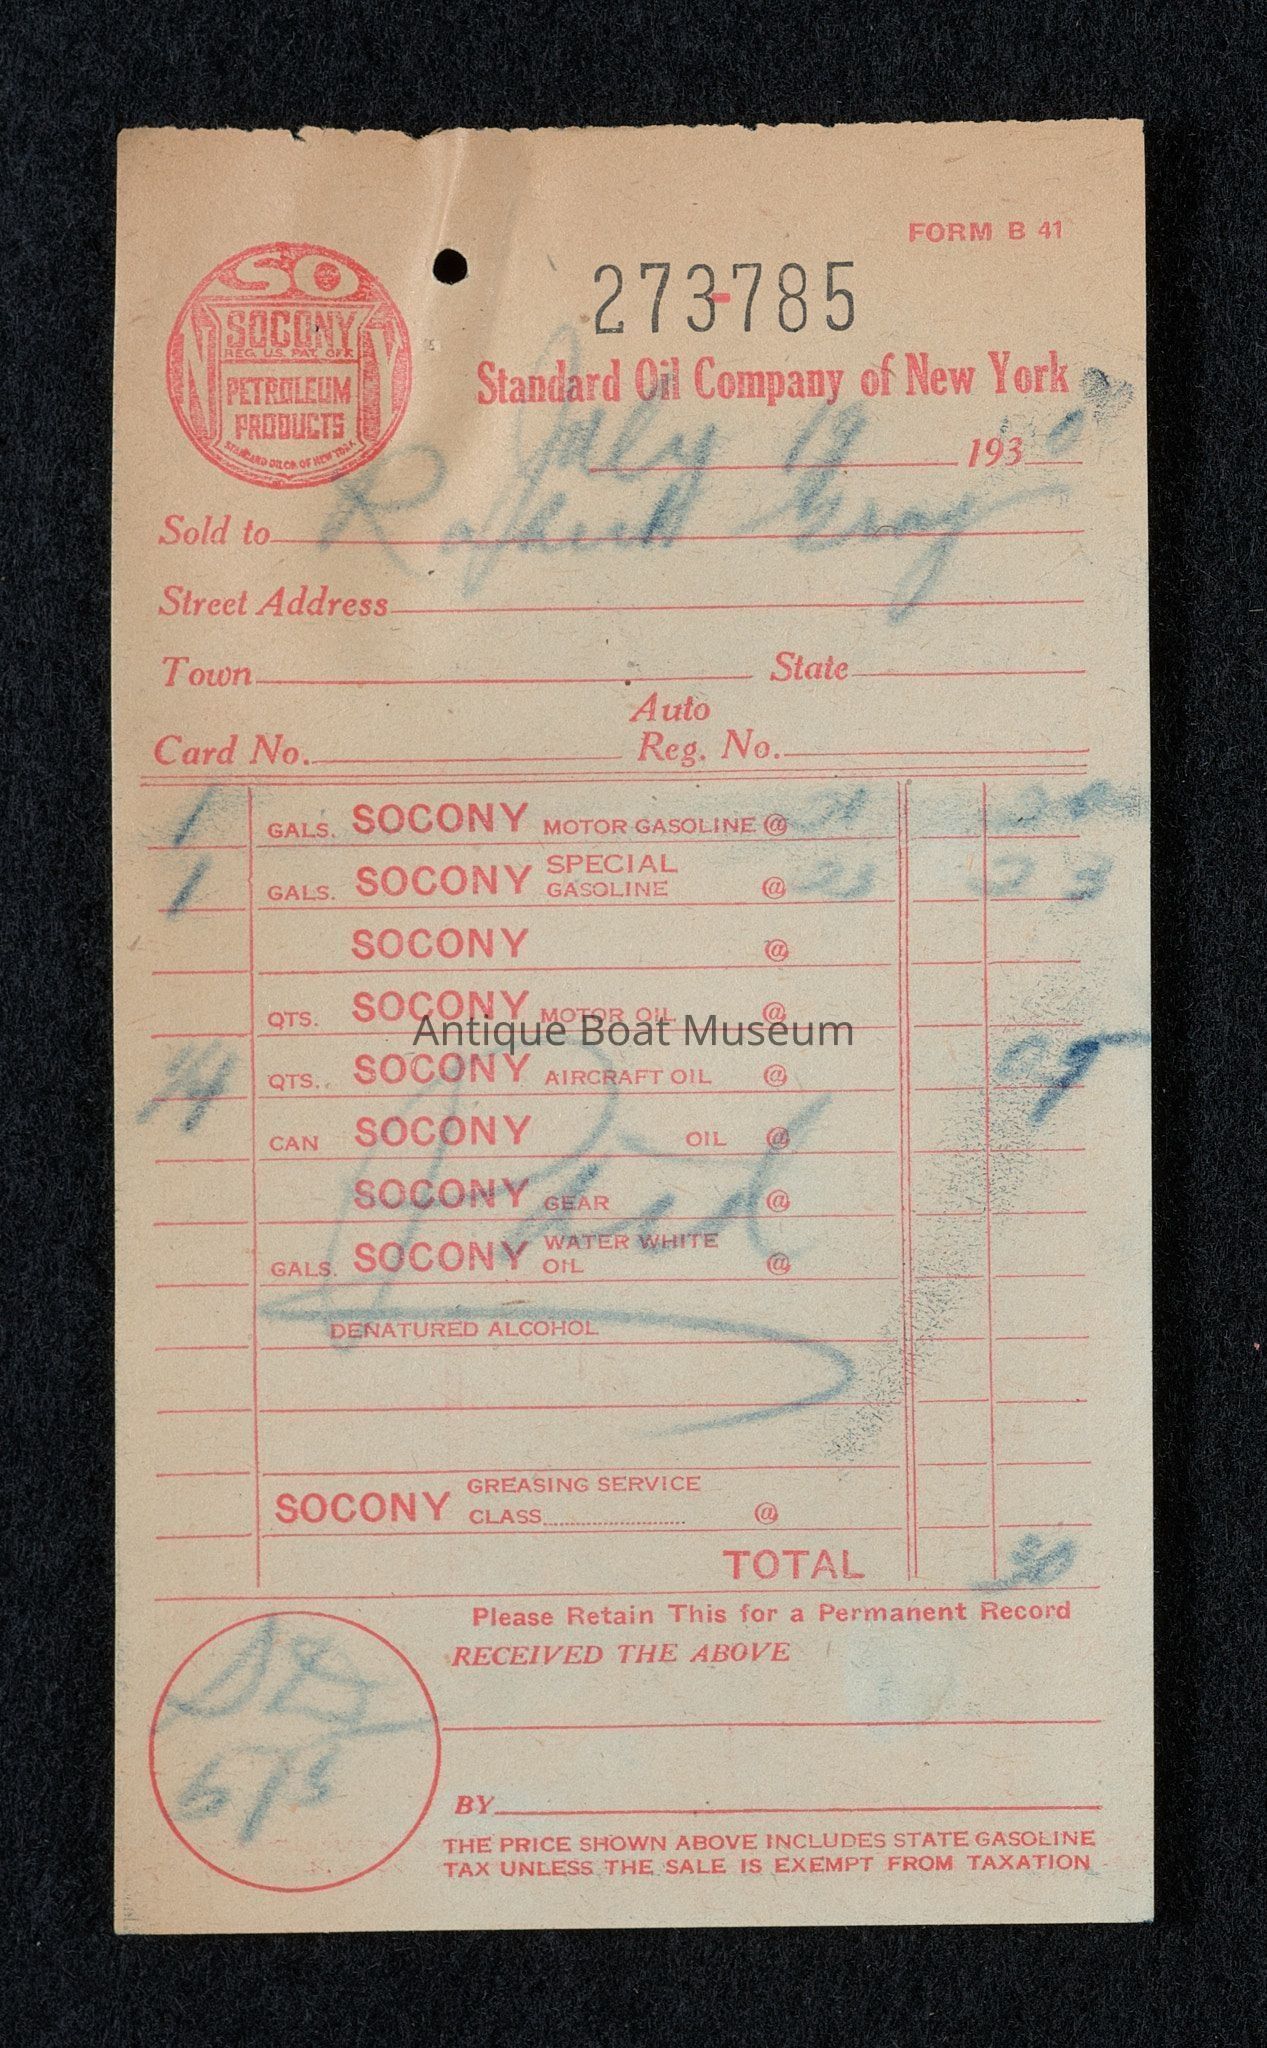 FORM B 41
SO
SOCONY
REG. U.S. PAT. OFF.
PETROLEUM
PRODUCTS
STANDARD OIL CO. OF NEW YORK
NY
273-785
Standard Oil Company of New York
July 19 1930
Sold to Gray
Street Address
Town State
Auto
Card No. Reg. No.
1 GALS. SOCONY MOTOR GASOLINE @
1 GALS. SOCONY SPECIAL GASOLINE @ 23 23
SOCONY @
QTS. SOCONY MOTOR OIL @
QTS. SOCONY AIRCRAFT OIL @
CAN SOCONY OIL @
SOCONY GEAR @
GALS. SOCONY WATER WHITE OIL @
Paid
DENATURED ALCOHOL
SOCONY GREASING SERVICE
CLASS @
TOTAL 30
Please Retain This for a Permanent Record
RECEIVED THE ABOVE
BY
THE PRICE SHOWN ABOVE INCLUDES STATE GASOLINE
TAX UNLESS THE SALE IS EXEMPT FROM TAXATION
Antique Boat Museum